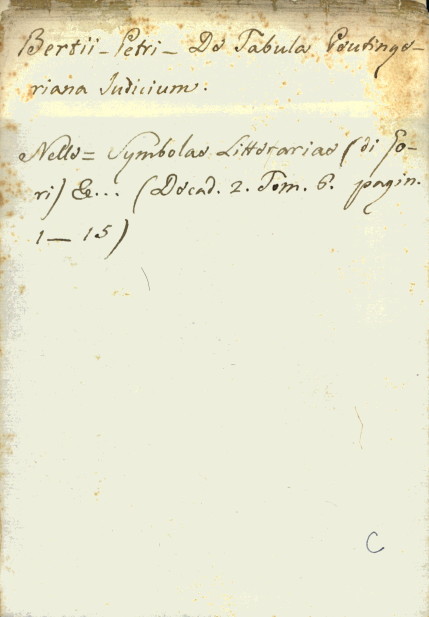 Bertii - Petri - De Tabula Peutinge-
riana Judicium.
Nelle = Symbolae Litterariae (di Go-
ri) &... (Decad. 2. Tom. 6. pagin.
1 — 15)
C